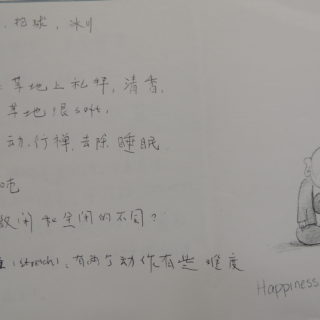 、招球，冰川
草地上礼拜，清香，
草地很soft，
动，行禅，去除睡眠
吃
散闲和空闲的不同？
(stretch)，有两个动作有些难度
Happiness